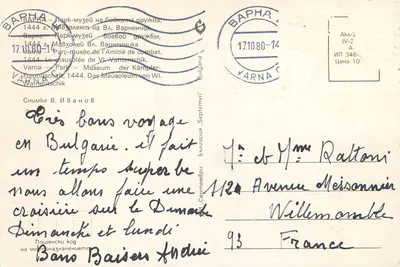 Варна - Парк-музей на бойната дружба,
1444 г. Мавзолей на Вл. Варненчик
Варна - Парк-музей боевой дружбы,
1444. Мавзолей Вл. Варненчика
Varna - Parc-musée de l'Amitié de combat,
1444. Le mausolée de Vl. Varnentchik
Varna - Park - Museum der Kampfer-
1444. Das Mausoleum von Wl.
Warnentschik
Снимка В. Иванов
ВАРНА
17.10.80-14
VARNA
ВАРНА
17.10.80-14
VARNA
Акл-2
IV-2
А
ИП 346
Цена 10
България "Септември"
Très bons voyage
en Bulgarie. il fait
un temps superbe
nous allons faire une
croisière sur le Danube
Dimanche et lundi
Bons Baisers André
Пощенски код
на местоназначението
Mr et Mme Rattoni
112 Avenue Meissonnier
Villemomble
93 France